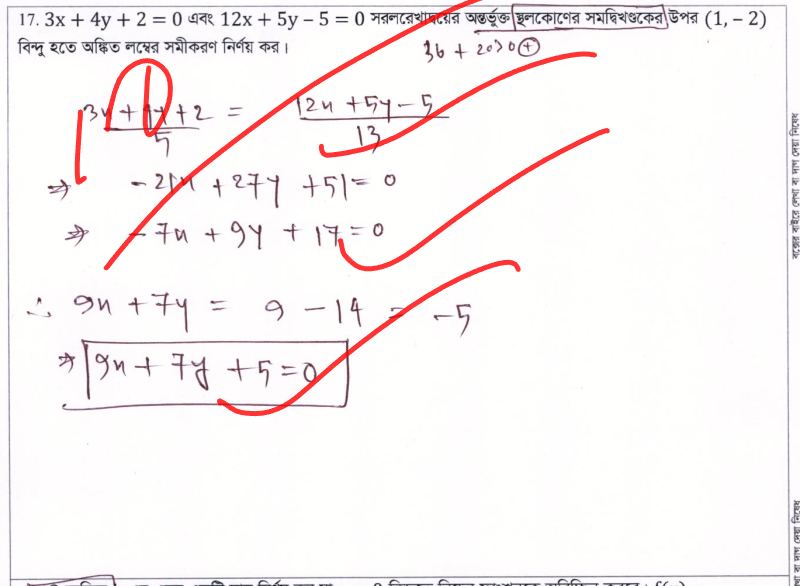 17. 3x + 4y + 2 = 0 এবং 12x + 5y − 5 = 0 সরলরেখাদ্বয়ের অন্তর্ভুক্ত স্থূলকোণের সমদ্বিখণ্ডকের উপর (1, − 2)
বিন্দু হতে অঙ্কিত লম্বের সমীকরণ নির্ণয় কর।
36 + 20>0 ⊕
(3x + 4y + 2)/5 = (12x + 5y − 5)/13
⇒ −21x + 27y + 51 = 0
⇒ −7x + 9y + 17 = 0
∴ 9x + 7y = 9 − 14 = −5
⇒ 9x + 7y + 5 = 0
বক্সের বাইরে লেখা বা দাগ দেয়া নিষেধ
বা দাগ দেয়া নিষেধ